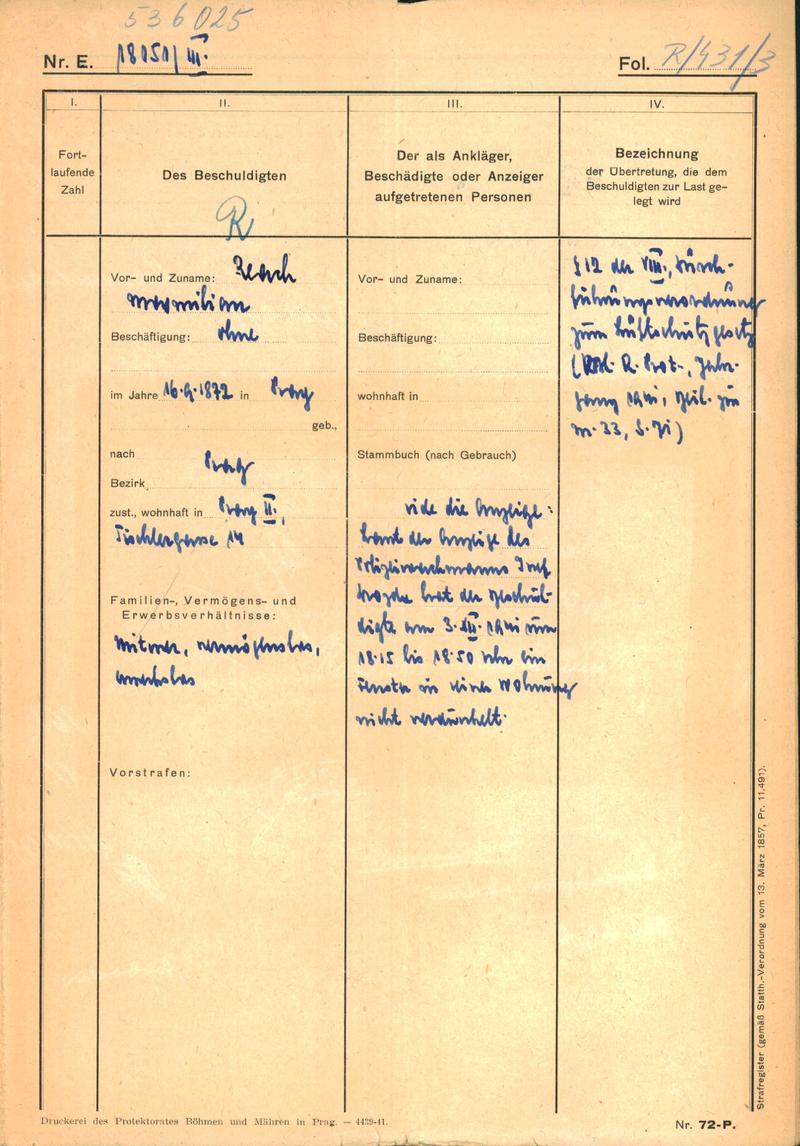 536025
Nr. E. 18051/III.
Fol. R/431/3
I.
II.
III.
IV.
Fort-
laufende
Zahl
Des Beschuldigten
R
Der als Ankläger,
Beschädigte oder Anzeiger
aufgetretenen Personen
Bezeichnung
der Übertretung, die dem
Beschuldigten zur Last ge-
legt wird
Vor- und Zuname:
Beschäftigung: ohne
im Jahre 16.9.1872 in Prag
geb.,
nach Prag
Bezirk
zust., wohnhaft in Prag II.,
Tischlergasse 14
Familien-, Vermögens- und
Erwerbsverhältnisse:
Witwer, vermögenslos,
erwerbslos
Vorstrafen:
Vor- und Zuname:
Beschäftigung:
wohnhaft in
Stammbuch (nach Gebrauch)
vide die Anzeige:
Laut der Anzeige des
hat der Beschul-
digte am 3.XII.1941 von
18.15 bis 18.50 Uhr ein
Fenster in seiner Wohnung
nicht verdunkelt.
§ 12 der VIII. Durch-
führungsverordnung
zum Luftschutzgesetz
Jahr-
gang 1941, Teil
Nr. 33, S.
Strafregister (gemäß Statth.-Verordnung vom 13. März 1857, Pr. 11.491).
Druckerei des Protektorates Böhmen und Mähren in Prag. — 4439-41.
Nr. 72-P.